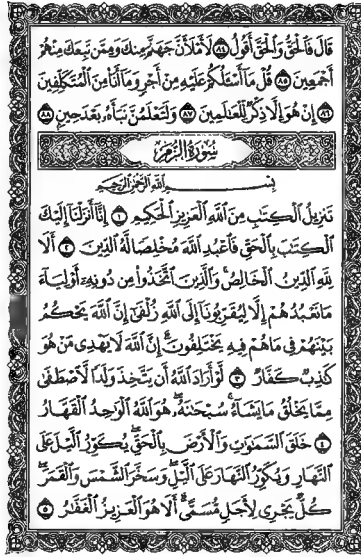 قَالَ فَالْحَقُّ وَالْحَقَّ أَقُولُ ٨٤ لَأَمْلَأَنَّ جَهَنَّمَ مِنكَ وَمِمَّن تَبِعَكَ مِنْهُمْ
أَجْمَعِينَ ٨٥ قُلْ مَا أَسْئَلُكُمْ عَلَيْهِ مِنْ أَجْرٍ وَمَا أَنَا مِنَ الْمُتَكَلِّفِينَ
٨٦ إِنْ هُوَ إِلَّا ذِكْرٌ لِلْعَالَمِينَ ٨٧ وَلَتَعْلَمُنَّ نَبَأَهُ بَعْدَ حِينٍ ٨٨
سُورَةُ الزُّمَرِ
بِسْمِ اللَّهِ الرَّحْمَٰنِ الرَّحِيمِ
تَنزِيلُ الْكِتَٰبِ مِنَ اللَّهِ الْعَزِيزِ الْحَكِيمِ ١ إِنَّا أَنزَلْنَا إِلَيْكَ
الْكِتَٰبَ بِالْحَقِّ فَاعْبُدِ اللَّهَ مُخْلِصًا لَّهُ الدِّينَ ٢ أَلَا
لِلَّهِ الدِّينُ الْخَالِصُ ۚ وَالَّذِينَ اتَّخَذُوا مِن دُونِهِ أَوْلِيَاءَ
مَا نَعْبُدُهُمْ إِلَّا لِيُقَرِّبُونَا إِلَى اللَّهِ زُلْفَىٰ إِنَّ اللَّهَ يَحْكُمُ
بَيْنَهُمْ فِي مَا هُمْ فِيهِ يَخْتَلِفُونَ ۗ إِنَّ اللَّهَ لَا يَهْدِي مَنْ هُوَ
كَٰذِبٌ كَفَّارٌ ٣ لَّوْ أَرَادَ اللَّهُ أَن يَتَّخِذَ وَلَدًا لَّاصْطَفَىٰ
مِمَّا يَخْلُقُ مَا يَشَاءُ ۚ سُبْحَٰنَهُ ۖ هُوَ اللَّهُ الْوَٰحِدُ الْقَهَّارُ
٤ خَلَقَ السَّمَٰوَٰتِ وَالْأَرْضَ بِالْحَقِّ ۖ يُكَوِّرُ الَّيْلَ عَلَى
النَّهَارِ وَيُكَوِّرُ النَّهَارَ عَلَى الَّيْلِ ۖ وَسَخَّرَ الشَّمْسَ وَالْقَمَرَ ۖ
كُلٌّ يَجْرِي لِأَجَلٍ مُّسَمًّى ۗ أَلَا هُوَ الْعَزِيزُ الْغَفَّٰرُ ٥